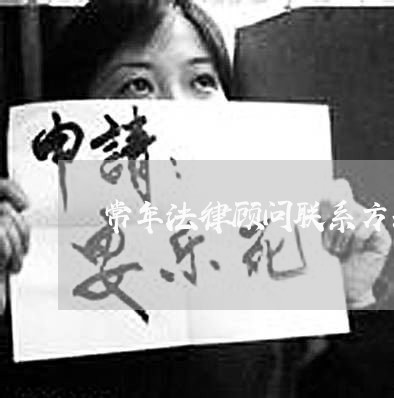 申請：
常年法律顾问联系方
安乐死